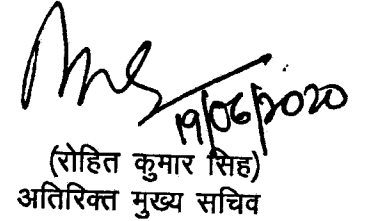 19/06/2020
(रोहित कुमार सिंह)
अतिरिक्त मुख्य सचिव